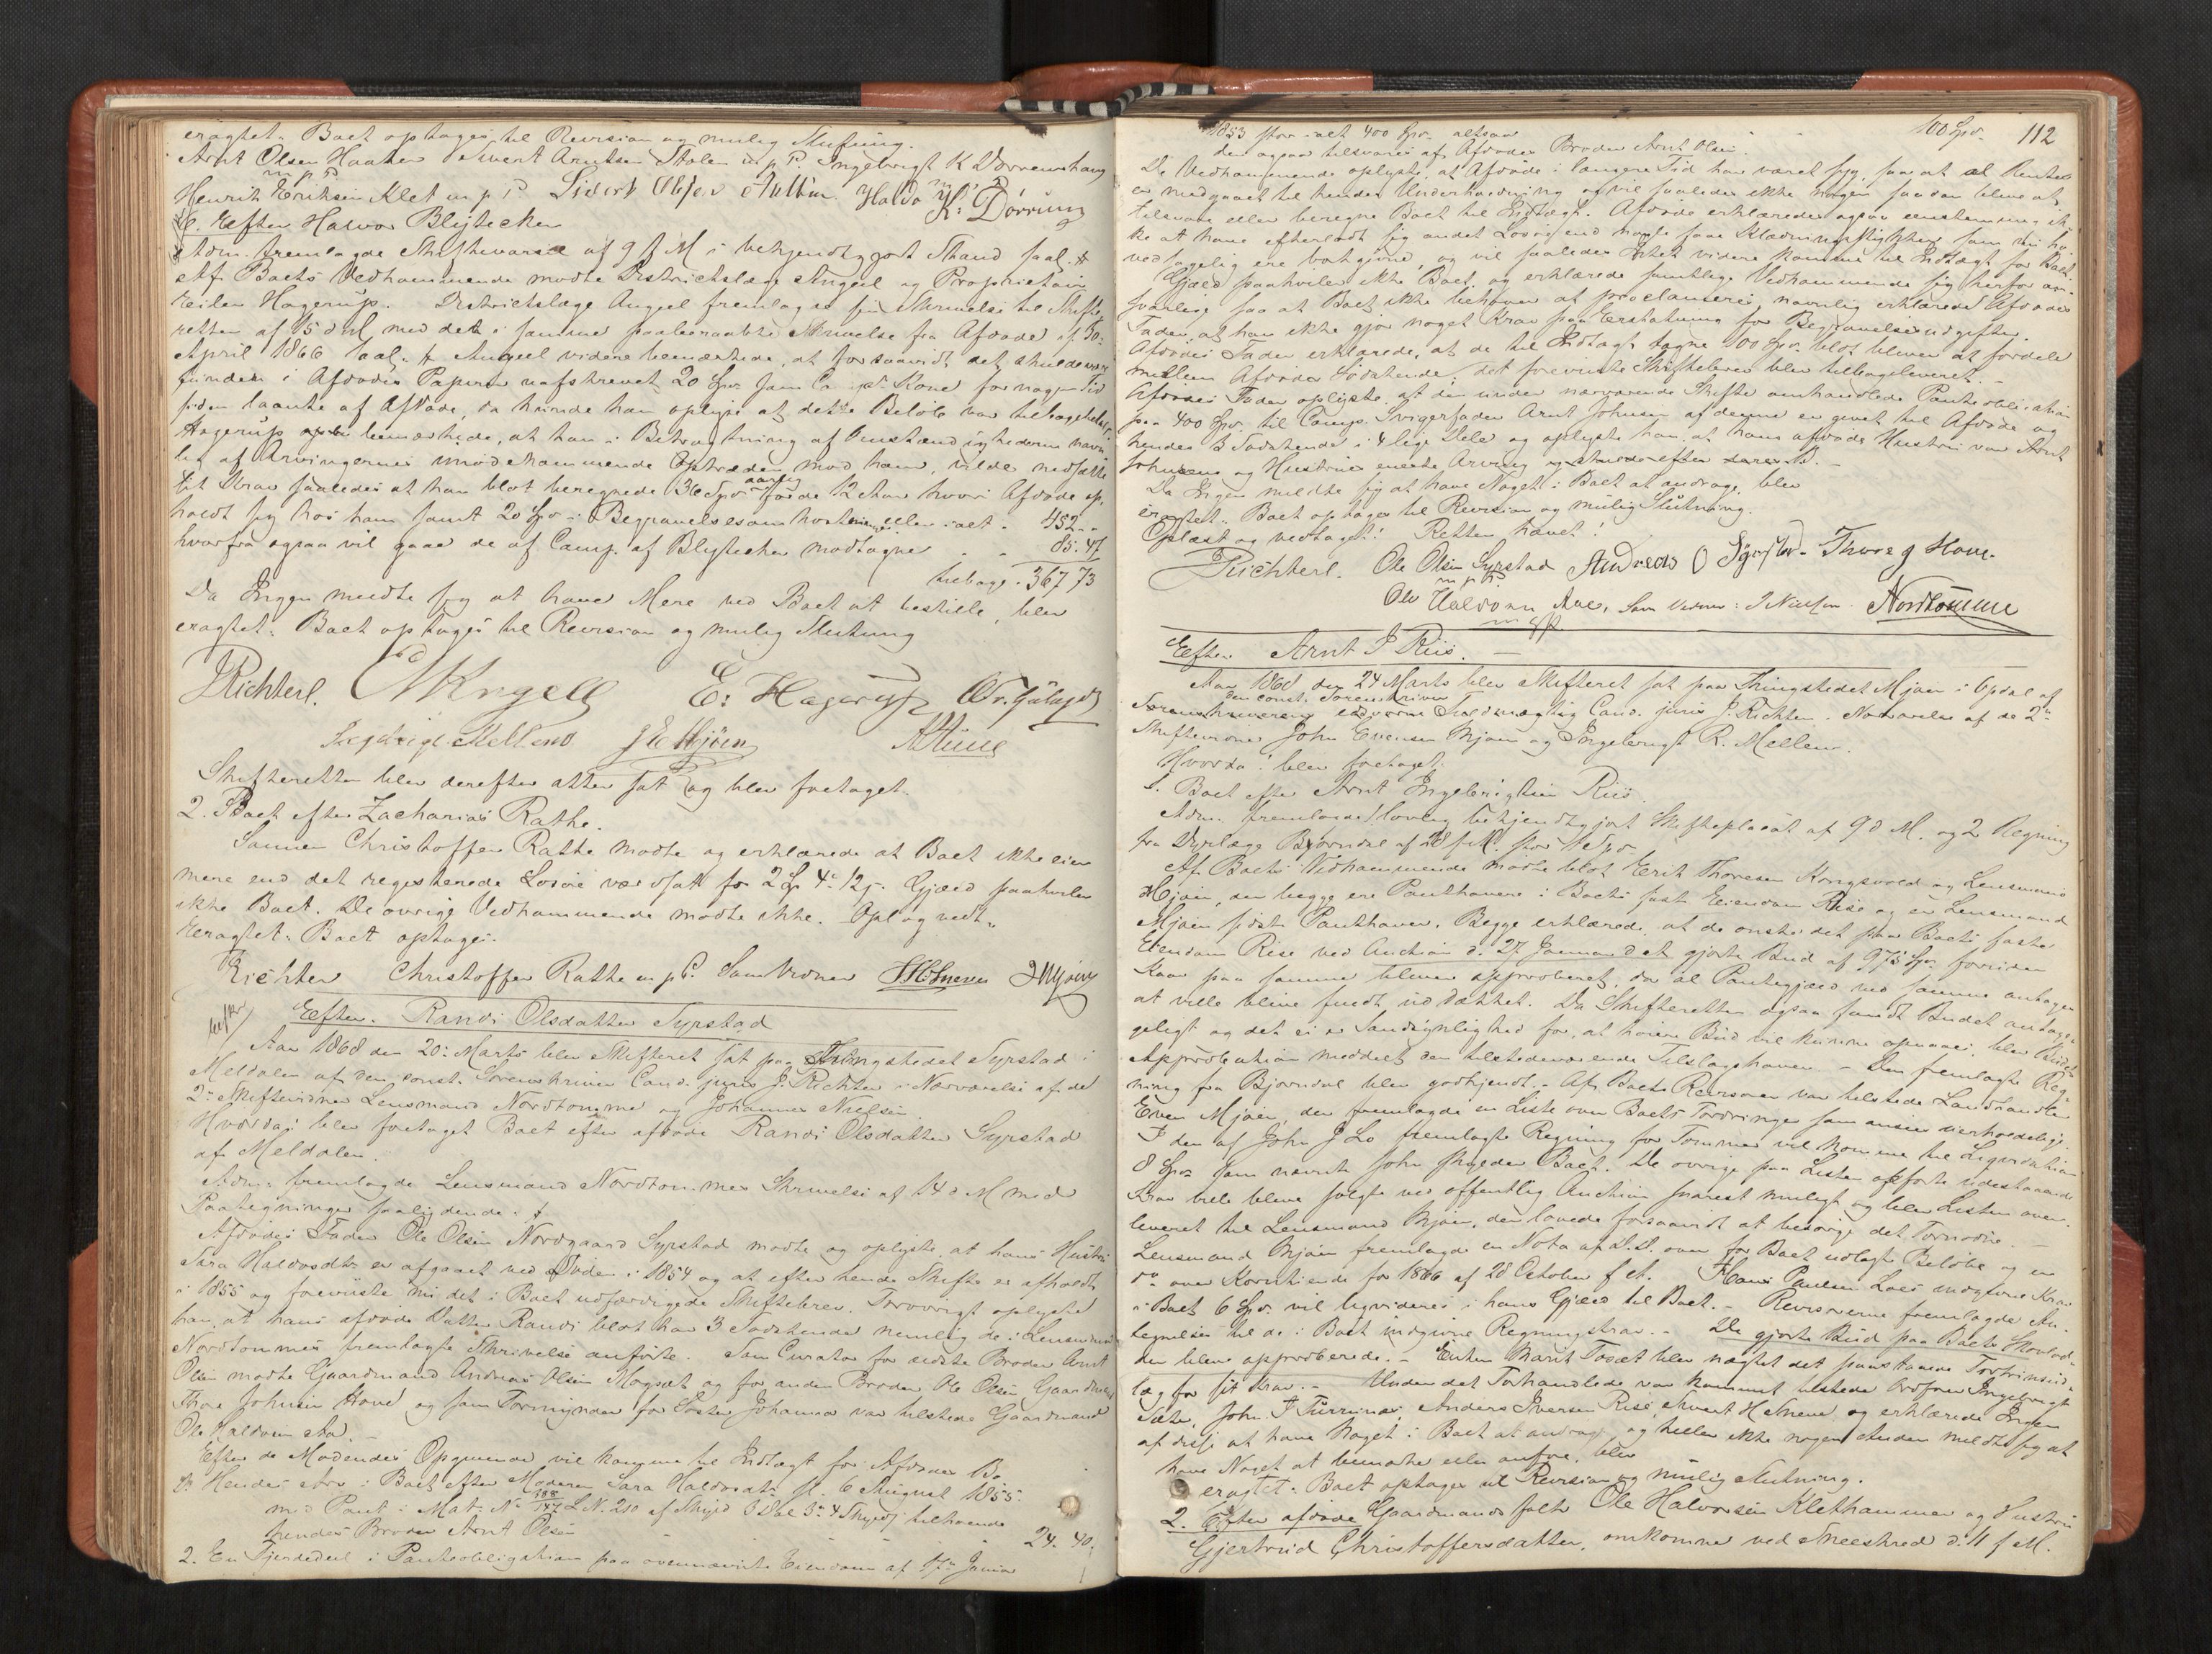 eragtet: Boet optages til Revision og mulig Slutning.
Arnt Olsen Haaker Sivert Arntsen Stølen m p P. Ingebrigt K Dørrumshaug
m p P
Henrik Eriksen Klet m p P Sivert Olsen Aulbu Haldo K: Dørrum
Efter Halvor Blejtecken
Adm. fremlagde Skiftevarsel af 9 f M i bekjendtgjort Stand saal.
Af Boets Vedkommende mødte Districtslæge Angell og Proprietair
Eiler Hagerup. Districtslæge Angell fremlagde sin Skrivelse til Skifte-
retten af 15 d M med den i samme paaberaabte Skrivelse fra Afdøde af 30
April 1866 saal. Angell videre bemærkede, at forsaavidt det skulde være
funden i Afdødes Papirer opskrevet 20 Spd som Kone for nogen Tid
siden laante af Afdøde, da kunde han oplyse at dette Beløb var tilbagebetalt
Hagerup bemærkede, at han i Betragtning af Omstændighederne navn-
lig af Arvingernes imødekommende Optræden mod ham, vilde nedsætte
sit Krav saaledes at han blot beregnede 36 Spd aarlig for de 12 Aar hvori Afdøde op-
holdt sig hos ham samt 20 Spd i Begravelsesomkostninger eller ialt . 452 "
hvorfra ogsaa vil gaae de af Comp. af Blejtecken modtagne . . 85. 47
tilbage . 367 73
Da Ingen meldte sig at have Mere ved Boet at bestille, blev
eragtet: Boet optages til Revision og mulig Slutning
JRichter. Angell E: Hagerup
Ingebrigt Mellem J E Mjøen
Skifteretten blev derefter atter sat og blev foretaget.
2. Boet efter Zacharias Rathe.
Sønnen Christoffer Rathe mødte og erklærede at Boet ikke eier
mere end det registrerede Løsøre værdsatt for 2 Sp 4 12 s. Gjæld paahviler
ikke Boet. De øvrige Vedkommende mødte ikke. Opl og vedt.
Eragtet: Boet optages.
Richter Christoffer Rathe m p P. Som Vidner JMjøen
Efter Randi Olsdatter Syrstad
Aar 1868 den 20: Marts blev Skifteret sat paa Thingstedet Syrstad i
Meldalen af den const. Sorenskriver Cand. juris J. Richter i Nærværelse af de
2 Skiftevidner Lensmand Nordtømme og Johannes Nielsen
Hvorda: blev foretaget Boet efter afdøde Randi Olsdatter Syrstad
af Meldalen.
Adm: fremlagde Lensmand Nordtømmes Skrivelse af 14 d M med
Paategninger saalydende.
Afdødes Fader Ole Olsen Nordgaard Syrstad mødte og oplyste, at hans Hustru
Sara Haldosdtr er afgaaet ved Døden i 1854 og at efter hende Skifte er afholdt
i 1855 og foreviste nu det i Boet udfærdigede Skiftebrev. Forøvrigt oplyste
han, at hans afdøde Datter Randi blot har 3 Sødskende nemlig de i Lensmand
Nordtømmes fremlagte Skrivelse anførte. Som Curator for ældste Broder Arnt
Olsen mødte Gaardmand Andreas Olsen og for anden Broder Ole Olsen Gaardmand
Thore Johnsen Hove og som Formynder for Søster Johanna var tilstede Gaardmand
Ole Haldorsen Aa.
Efter de Mødendes Opgivende vil komme til Indtægt for Afdødes Bo
1. Hendes Arv i Boet efter Moderen Sara Haldosdtr sl. 6 August 1855
med Pant i Mat: No 147 L. N. 210 af Skyld 3 Dal 3 4 Skyll tilhørende
hendes Broder Arnt Olsen . . . 24. 40.
2. En Fjerdedeel i Panteobligation paa ovennævnte Eiendom af Januar
112
1853 stor ialt 400 Spd. altsaa 100 Spd.
der ogsaa tilsvares af Afdødes Broder Arnt Olsen.
De Vedkommende oplyste, at Afdøde i længere Tid har været syg, saa at al Renter
er medgaaet til hendes Underholdning og vil saaledes ikke nogen saadan blive at
tilsvare eller beregne Boet til Indtægt. Afdøde erklæredes ogsaa eenstemmig ik-
ke at have efterladt sig andet Løsøre end nogle faa Klædningsstykker som
ere bortgivne, og vil saaledes Intet videre komme til Indtægt for Boet
Gjæld paahviler ikke Boet, og erklærede samtlige Vedkommende sig herfor an-
svarlige saa at Boet ikke behøver at proclameres, navnlig erklærede Afdødes
Fader, at han ikke gjør noget Krav paa Erstatning for Begravelsesudgifter.
Afdødes Fader erklærede, at de til Indtægt tagne 100 Spd. blot bliver at fordele
mellem Afdødes Sødskende, det foreviste Skiftebrev blev tilbageleveret. -
Afdødes Fader oplyste, at den under nærværende Skifte omhandlede Panteobligation
paa 400 Spd. til Comp. Svigerfader Arnt Johnsen af denne er givet til Afdøde og
hendes 3 Sødskende i 4 lige Dele og oplyste han, at hans afdøde Hustru var Arnt
Johnsens og Hustrues eneste Arving
Da Ingen meldte sig at have Noget i Boet at andrage, blev
eragtet: Boet optages til Revision og mulig Slutning.
Oplæst og vedtaget! Retten hævet!
JRichter. Ole Olsen Syrstad Andreas O Thore J Hove.
m p P.
Ole Haldorsen Aae, Som Vidner: J Nielsen. Nordtømme
Efter Arnt I Riis.
Aar 1868 den 24 Marts blev Skifteret sat paa Thingstedet Mjøen i Opdal af
den const. Sorenskriver
Sorenskriverens edsvorne Fuldmægtig Cand. juris J. Richter. Nærværelse af de 2
Skiftevidner John Evensen Mjøen og Ingebrigt R. Mellem.
Hvorda! blev foretaget:
1. Boet efter Arnt Ingebrigtsen Riis.
Adm. fremlagde lovlig bekjendtgjort Skifteplacat af 9 d M. og 2 Regning
fra Dyrlæge Bjørndal af 28 f M. stor 1 Spd
Af Boets Vedkommende mødte blot Erik Thoresen Kongsvold og Lensmand
Mjøen, der begge ere Panthavere i Boets faste Eiendom Rise og er Lensmand
Mjøen sidste Panthaver. Begge erklærede, at de ønske det paa Boets faste
Eiendom Rise ved Auction d. 27 Januar d A gjorte Bud af 975 Spd foruden
Kaar paa samme bliver approberet, da al Pantegjæld ved samme antages
at ville blive fuldt ud dækket. Da Skifteretten ogsaa fandt Budet antage-
ligt og det ei er Sandsynlighed for, at høiere Bud vil kunne opnaaes, blev Budet
Approbation meddelt den tilstedeværende Tilslagshaver. - Den fremlagte Reg-
ning fra Bjørndal blev godkjendt. - Af Boets Revisorer var tilstede Landhandler
Even Mjøen, der fremlagde en Liste over Boets Fordringer som ansees uerholdelige.
I den af John J Lo fremlagte Regning for Tømmer vil komme til Liqvidation
8 Spd. som nævnte John skylder Boet. De øvrige paa Listen opførte udestaaende
Krav ville blive solgte ved offentlig Auction snarest muligt og blev Listen over-
leveret til Lensmand Mjøen, der lovede forsaavidt at besørge det Fornødne. -
Lensmand Mjøen fremlagde en Nota af D. D. over for Boet udlagte Beløb og en
do over Korntiende for 1866 af 28 October f A. Hans Paulsen Loes indgivne Krav
i Boet 6 Spd. vil liqvideres i hans Gjæld til Boet. - Revisorerne fremlagde An-
tegnelser til de i Boet indgivne Regningskrav. - De gjorte Bud paa Boets
den bleve approberede. - Enken Marit Tosæt blev nægtet det paastaaede Fortrinsud-
læg for sit Krav. - Under det Forhandlede var kommet tilstede Ordfører Ingebrigt
Sæter, John T Furrunes, Anders Iversen Rise, Sivert H Snewe og erklærede Ingen
af disse at have Noget i Boet at andrage, og heller ikke nogen Anden meldte sig at
have Noget at bemærke eller anføre, blev
eragtet: Boet optages til Revision og mulig Slutning.
2. Efter afdøde Gaardmandsfolk Ole Halvorsen Klethammer og Hustru
Gjertrud Christoffersdatter, omkomne ved Sneeskred d. 11 f M.